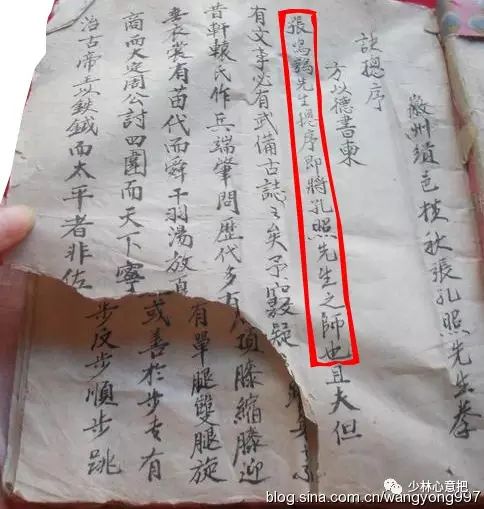 徽州績邑橫秋張孔照先生拳
訣摠序
方以德書東
張鳴鶚先生摠序即將孔照先生之師也且夫但
有文事必有武備古誌之矣予竊疑
昔軒轅氏作兵端肇開歷代多有項膝縮膝迎
垂衣裳有苗代而舜干羽湯放有單腿雙腿旋
商而大定周公討四國而天下寧或善於步者有
治古帝以鉄鉞而太平者非佐步反步順步跳
少林心意把
blog.sina.com.cn/wangyong997